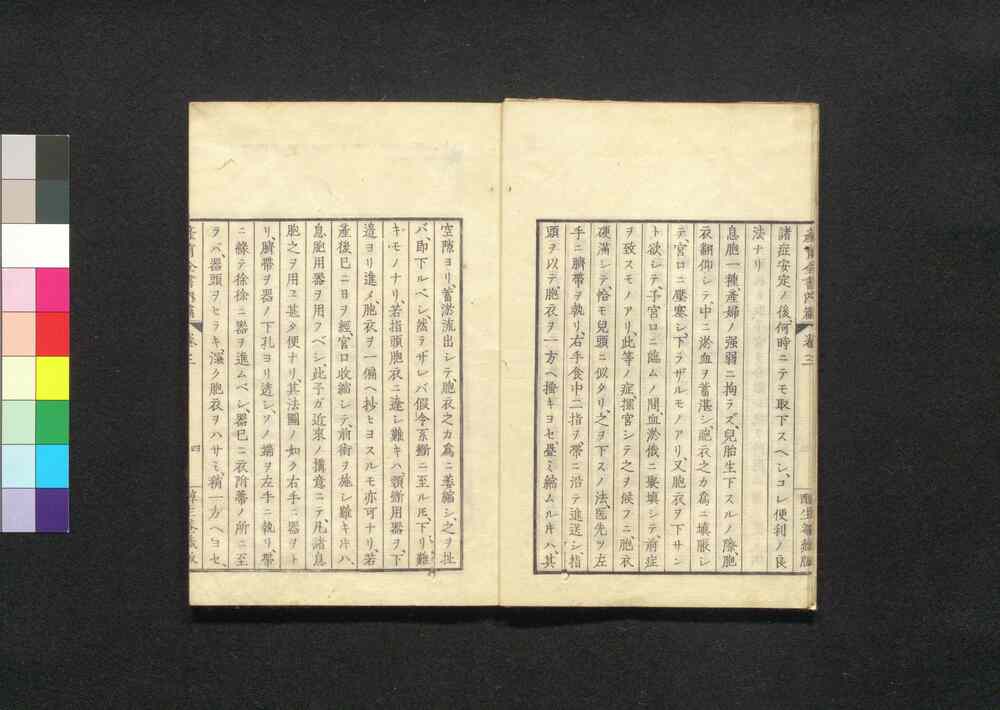 産育全書内篇 卷三
諸症安定ノ後、何時ニテモ取下スヘシ、コレ便利ノ良
法ナリ
息胞一種、產婦ノ强弱ニ拘ラズ、兒胎生下スルノ際、胞
衣翻仰シテ、中ニ淤血ヲ蓄湛シ、胞衣之カ爲ニ填脹シ
テ、宮口ニ壅塞シ、下ラザルモノアリ、又胞衣ヲ下サン
ト欲シテ、子宮口ニ臨ムノ間、血淤儀ニ填シテ、前症
ヲ致スモノアリ、此等ノ症、探宮シテ之ヲ候フニ、胞衣
硬滿シテ、恰モ兒頭ニ似タリ、之ヲ下スノ法、医先ツ左
手ニ臍帶ヲ執リ、右手食中二指ヲ、帶ニ沿テ進送シ、指
頭ヲ以テ、胞衣ヲ一方ヘ搔キヨセ、疊ミ縮ムル片ハ、其
空隙ヨリ、蓄淤流出シテ、胞衣之カ爲ニ萎縮シ、之ヲ扯
バ、即下ルベシ、然ラザレバ假令系斷ニ至ル圧、下リ難
キモノナリ、若指頭胞衣ニ達シ難キハ、頭斷用器ヲ、下
邉ヨリ進メ、胞衣ヲ一偏ヘ抄ヒヨスルモ亦可ナリ、若
產後已ニ日ヲ經、宮口收縮シテ、前術ヲ施シ難キ片ハ、
息胞用器ヲ用フベシ、此予ガ近來ノ搆意ニテ、凡諸息
胞之ヲ用ユ甚タ便ナリ、其法圖ノ如ク右手ニ器ヲト
リ、臍帶ヲ器ノ下孔ヨリ透シ、ソノ端ヲ左手ニ執リ、帶
ニ緣テ徐徐ニ器ヲ進ムベシ、器已ニ衣附蒂ノ所ニ至
ラバ、器頭ヲヒラキ、深ク胞衣ヲハサミ、稍一方ヘヨセ、
卷三 四